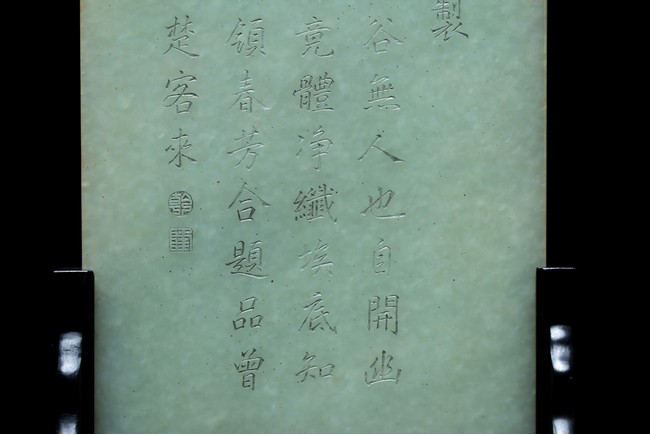 製
谷無人也自開幽
竟體净纖埃底知
領春芳合題品曾
楚客來